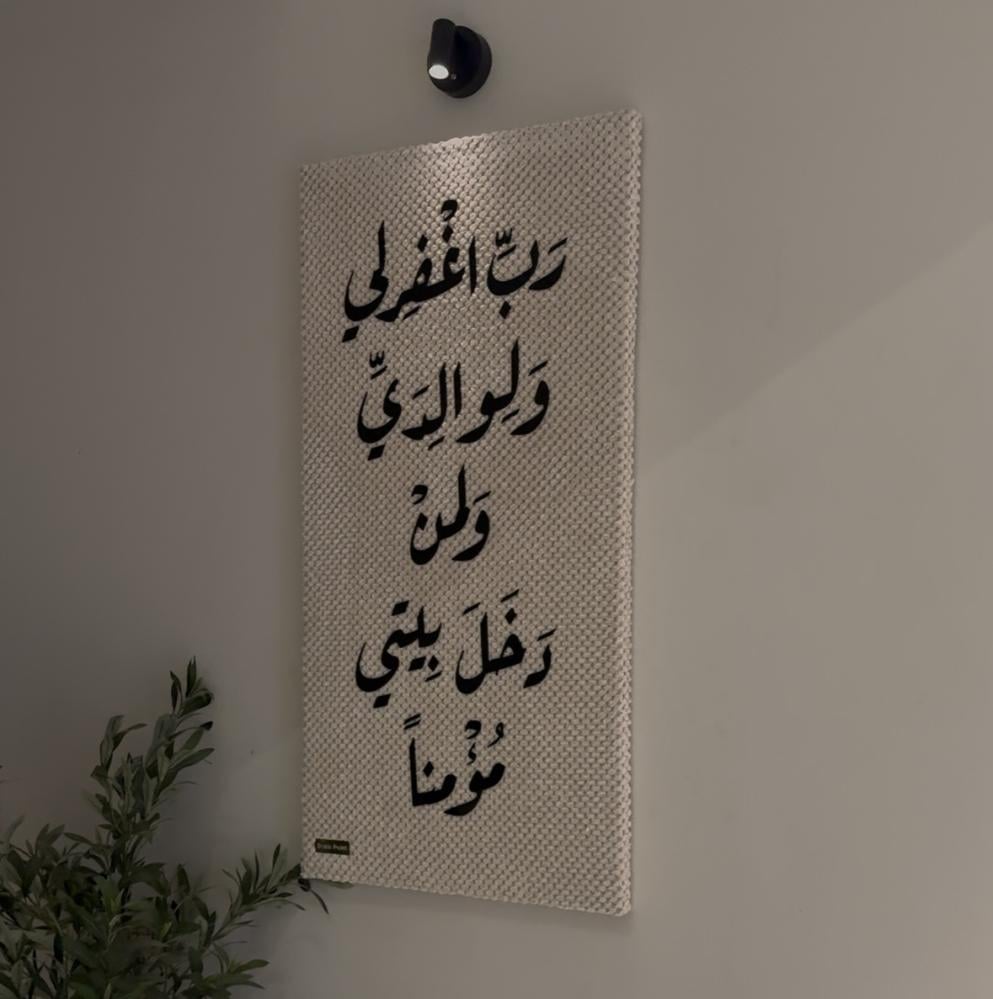 رَبِّ اغْفِرلي
وَلِوالِدَيَّ
وَلمنْ
دَخَلَ بِيتي
مُؤْمناً